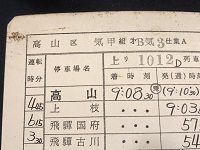 高山区 気甲組 才B気3仕業A
運転時分 停車場名 上り 1012D 列車
着時刻 発(通)時刻
高山 9:08 30 発 (9:10 30)
405 上枝
615 飛騨国府 57
330 飛騨古川 54